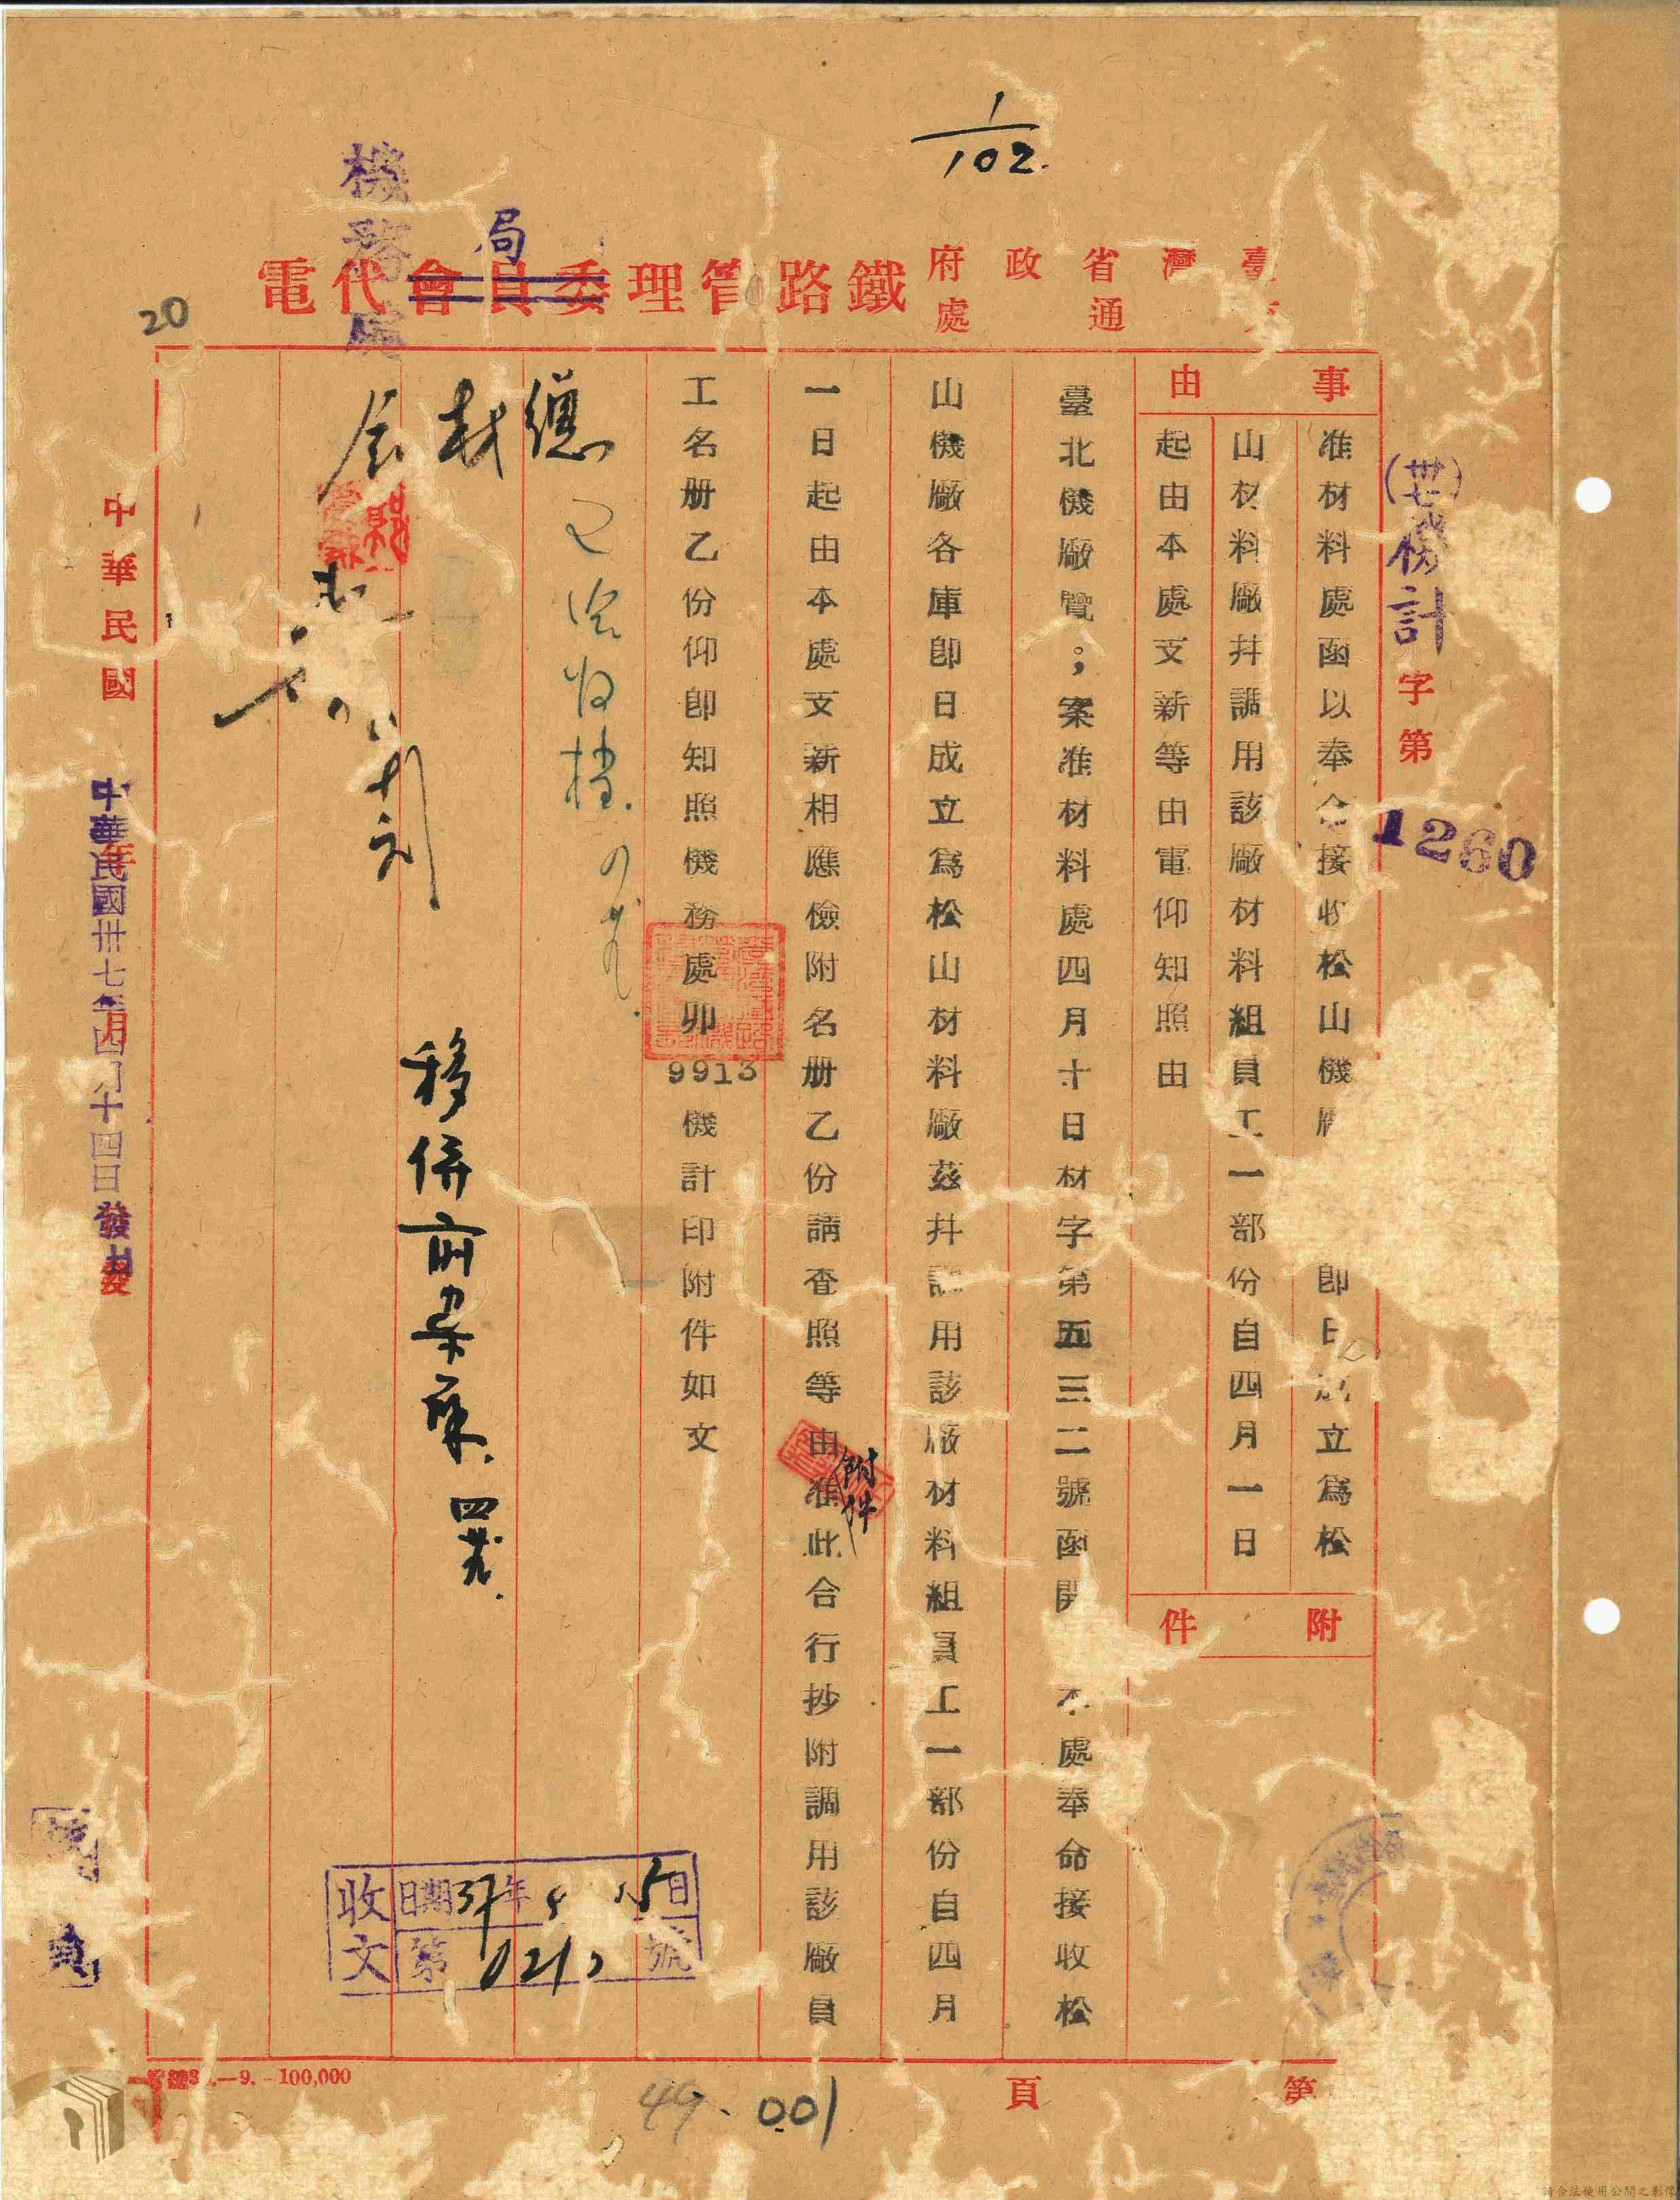 1/102.
機務處
局
臺灣省政府
交通處
鐵路管理委員會代電
20
(卅七)機計字第1260
事由
准材料處函以奉令接收松山機廠即日成立爲松
山材料廠幷調用該廠材料組員工一部份自四月一日
起由本處支薪等由電仰知照由
附件
臺北機廠覽；案准材料處四月十日材字第五三二號函開 本處奉命接收松
山機廠各庫即日成立爲松山材料廠茲幷調用該廠材料組員工一部份自四月
一日起由本處支薪相應檢附名册乙份請查照等由准此合行抄附調用該廠員
附件
工名册乙份仰即知照機務處卯
9913
機計印附件如文
總
材
移併前案辦
中華民國
中華民國卅七年四月十四日發出
收文
日期37年4 15日
第 號
100,000
第頁
49.001
請合法使用公開之影像